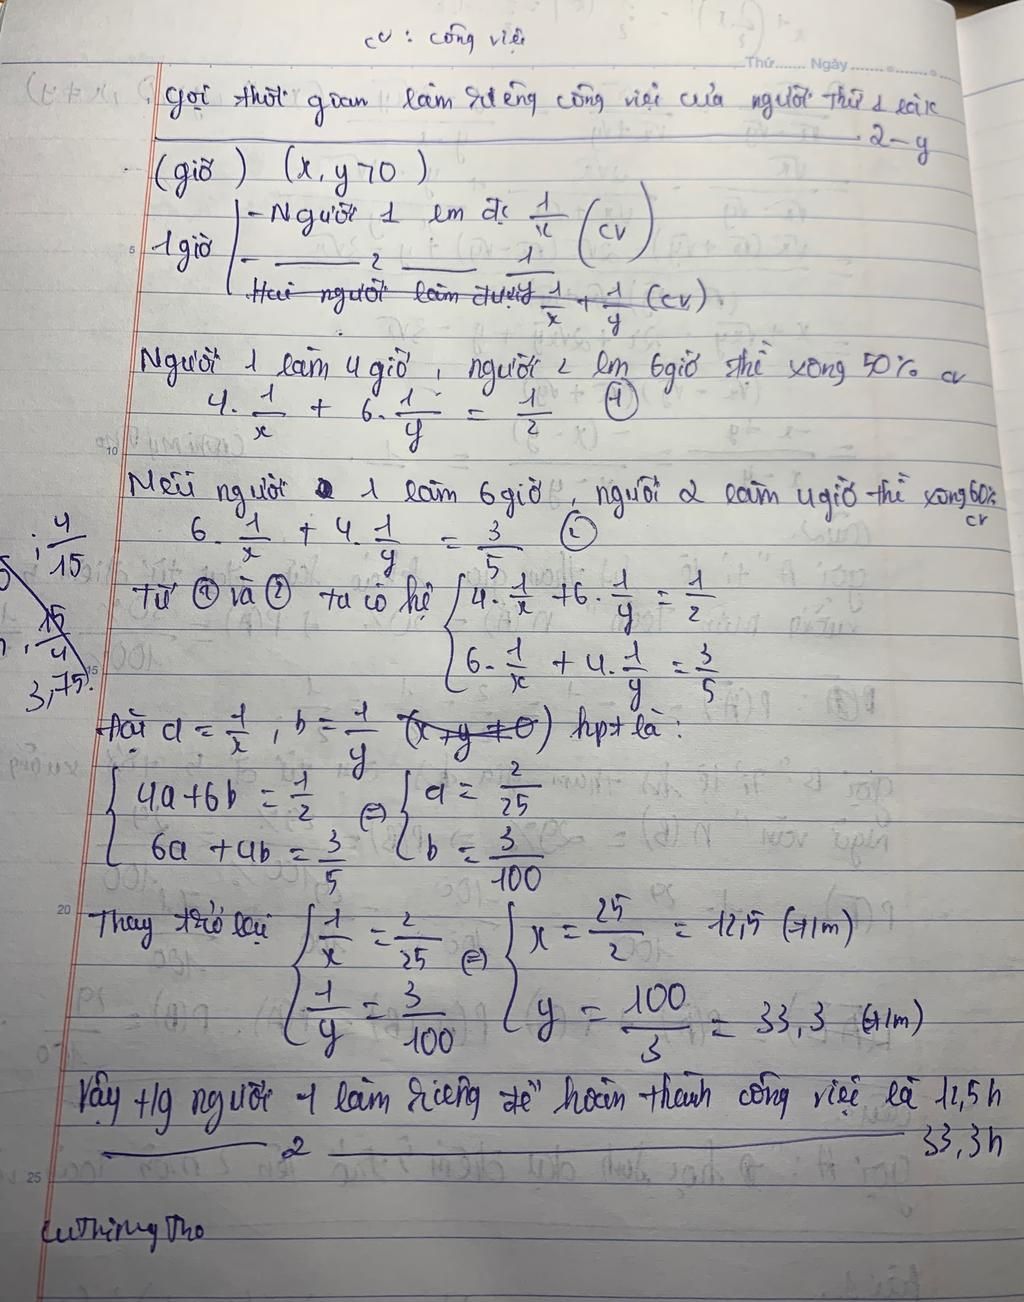 cv : công việc
Thứ....... Ngày
gọi thời gian làm riêng công việc của người thứ 1 là x
2 - y
(giờ) (x, y > 0)
1 giờ
- Người 1 lm đc 1/x (cv)
- ——— 2 ——— 1
Hai người làm được 1/x + 1/y (cv)
Người 1 làm 4 giờ, người 2 lm 6 giờ thì xong 50% cv
4. 1/x + 6. 1/y = 1/2 ①
Nếu người 1 làm 6 giờ, người 2 làm 4 giờ thì xong 60% cv
6. 1/x + 4. 1/y = 3/5 ②
từ ① và ② ta có hệ { 4. 1/x + 6. 1/y = 1/2
6. 1/x + 4. 1/y = 3/5
: 4/15
15/4
3,75.
Đặt a = 1/x, b = 1/y (x, y ≠ 0) hpt là:
{ 4a + 6b = 1/2 (=) { a = 2/25
6a + 4b = 3/5 b = 3/100
Thay trở lại { 1/x = 2/25 (=) { x = 25/2 = 12,5 (t/m)
1/y = 3/100 y = 100/3 = 33,3 (t/m)
Vậy t/g người 1 làm riêng để hoàn thành công việc là 12,5h
——— 2 ——— 33,3h
5
10
15
20
25